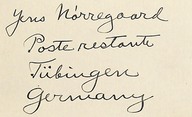 Jens Nørregaard
Poste restante
Tübingen
Germany